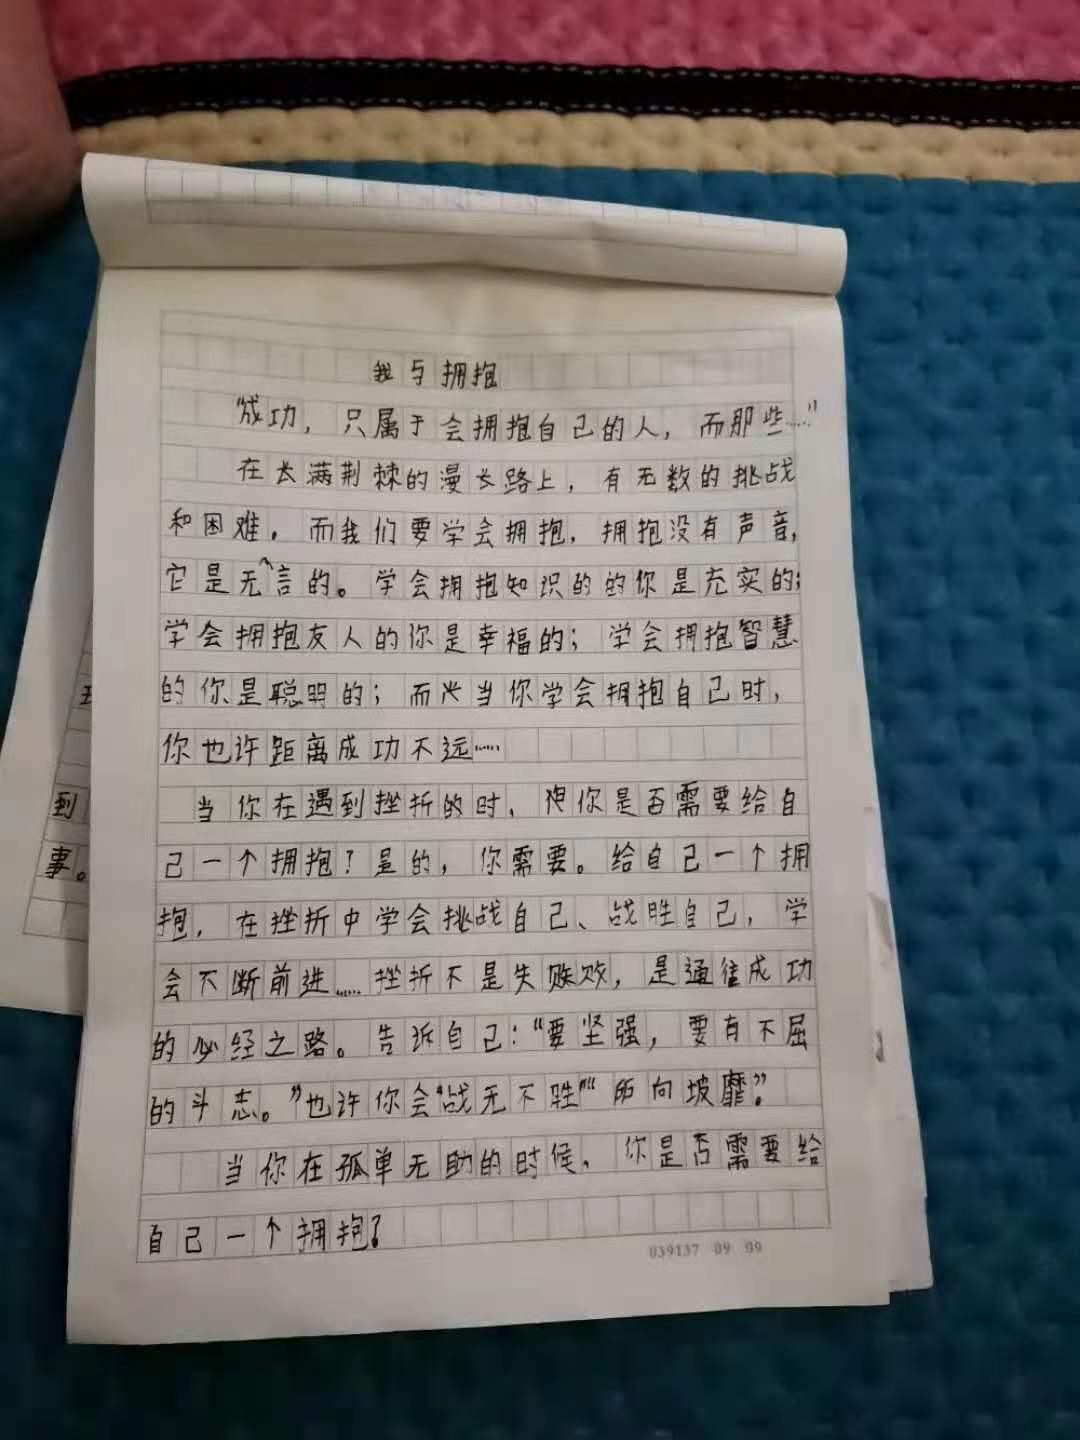 我与拥抱
“成功，只属于会拥抱自己的人，而那些……”
在长满荆棘的漫长路上，有无数的挑战
和困难。而我们要学会拥抱，拥抱没有声音，
它是无言的。学会拥抱知识的的你是充实的；
学会拥抱友人的你是幸福的；学会拥抱智慧
的你是聪明的；而当你学会拥抱自己时，
你也许距离成功不远……
当你在遇到挫折的时，你是否需要给自
己一个拥抱？是的，你需要。给自己一个拥
抱，在挫折中学会挑战自己、战胜自己，学
会不断前进……挫折不是失败，是通往成功
的必经之路。告诉自己：“要坚强，要有不屈
的斗志。”也许你会“战无不胜”“所向坡靡”。
当你在孤单无助的时候，你是否需要给
自己一个拥抱？
039137 09 09
到
事。